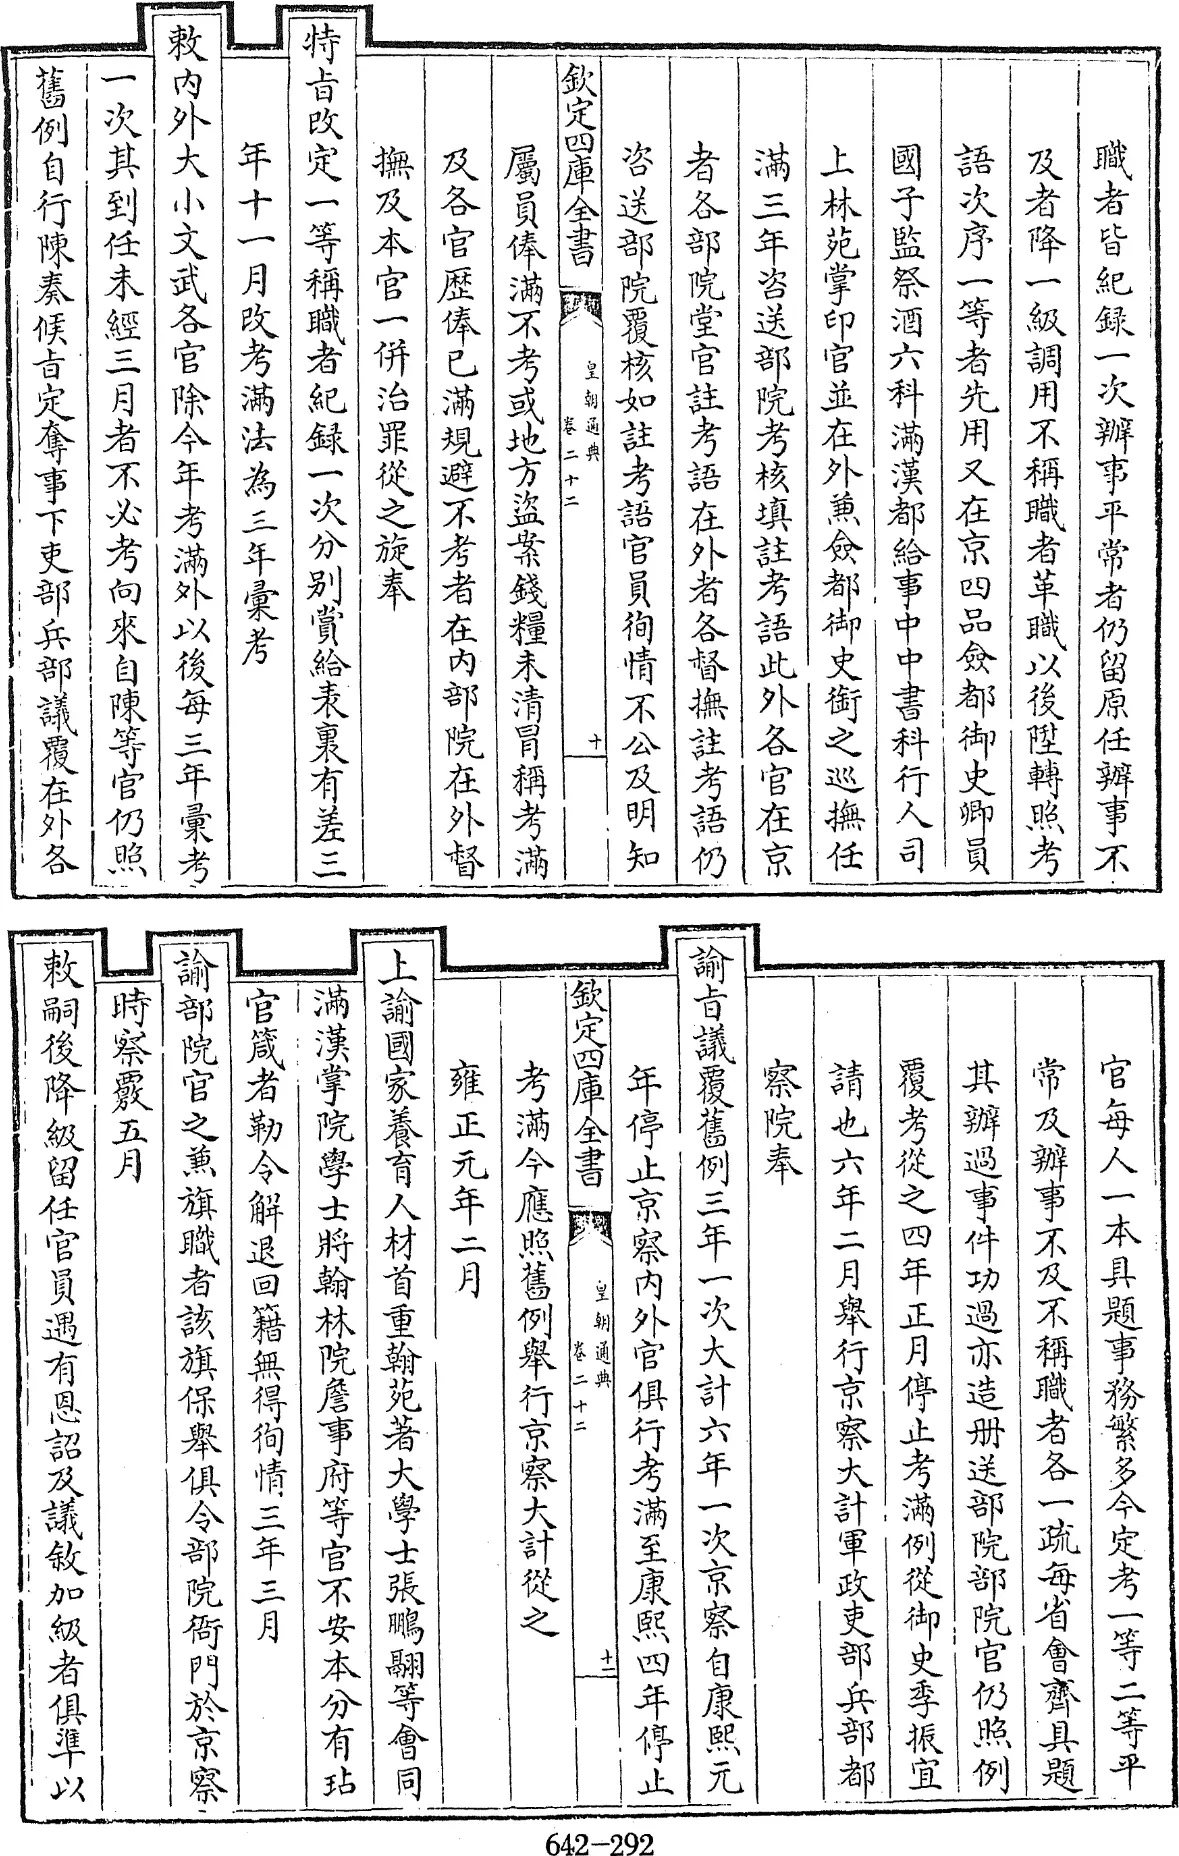 職者皆紀録一次辦事平常者仍留原任辦事不
及者降一級調用不稱職者革職以後陞轉照考
語次序一等者先用又在京四品僉都御史卿員
國子監祭酒六科滿漢都給事中中書科行人司
上林苑掌印官並在外兼僉都御史銜之巡撫任
滿三年咨送部院考核填註考語此外各官在京
者各部院堂官註考語在外者各督撫註考語仍
咨送部院覆核如註考語官員徇情不公及明知
欽定四庫全書
皇朝通典
卷二十二
十
屬員俸滿不考或地方盜案錢糧未清冒稱考滿
及各官歷俸已滿規避不考者在内部院在外督
撫及本官一併治罪從之旋奉
特旨改定一等稱職者紀録一次分别賞給表裏有差三
年十一月改考滿法為三年彙考
敕内外大小文武各官除今年考滿外以後每三年彙考
一次其到任未經三月者不必考向來自陳等官仍照
舊例自行陳奏候旨定奪事下吏部兵部議覆在外各
官每人一本具題事務繁多今定考一等二等平
常及辦事不及不稱職者各一疏每省會齊具題
其辦過事件功過亦造册送部院部院官仍照例
覆考從之四年正月停止考滿例從御史季振宜
請也六年二月舉行京察大計軍政吏部兵部都
察院奉
諭旨議覆舊例三年一次大計六年一次京察自康熙元
年停止京察内外官俱行考滿至康熙四年停止
欽定四庫全書
皇朝通典
卷二十二
十一
考滿今應照舊例舉行京察大計從之
雍正元年二月
上諭國家養育人材首重翰苑著大學士張鵬翮等會同
滿漢掌院學士將翰林院詹事府等官不安本分有玷
官箴者勒令解退回籍無得徇情三年三月
諭部院官之兼旗職者該旗保舉俱令部院衙門於京察
時察覈五月
敕嗣後降級留任官員遇有恩詔及議敘加級者俱準以
642-292